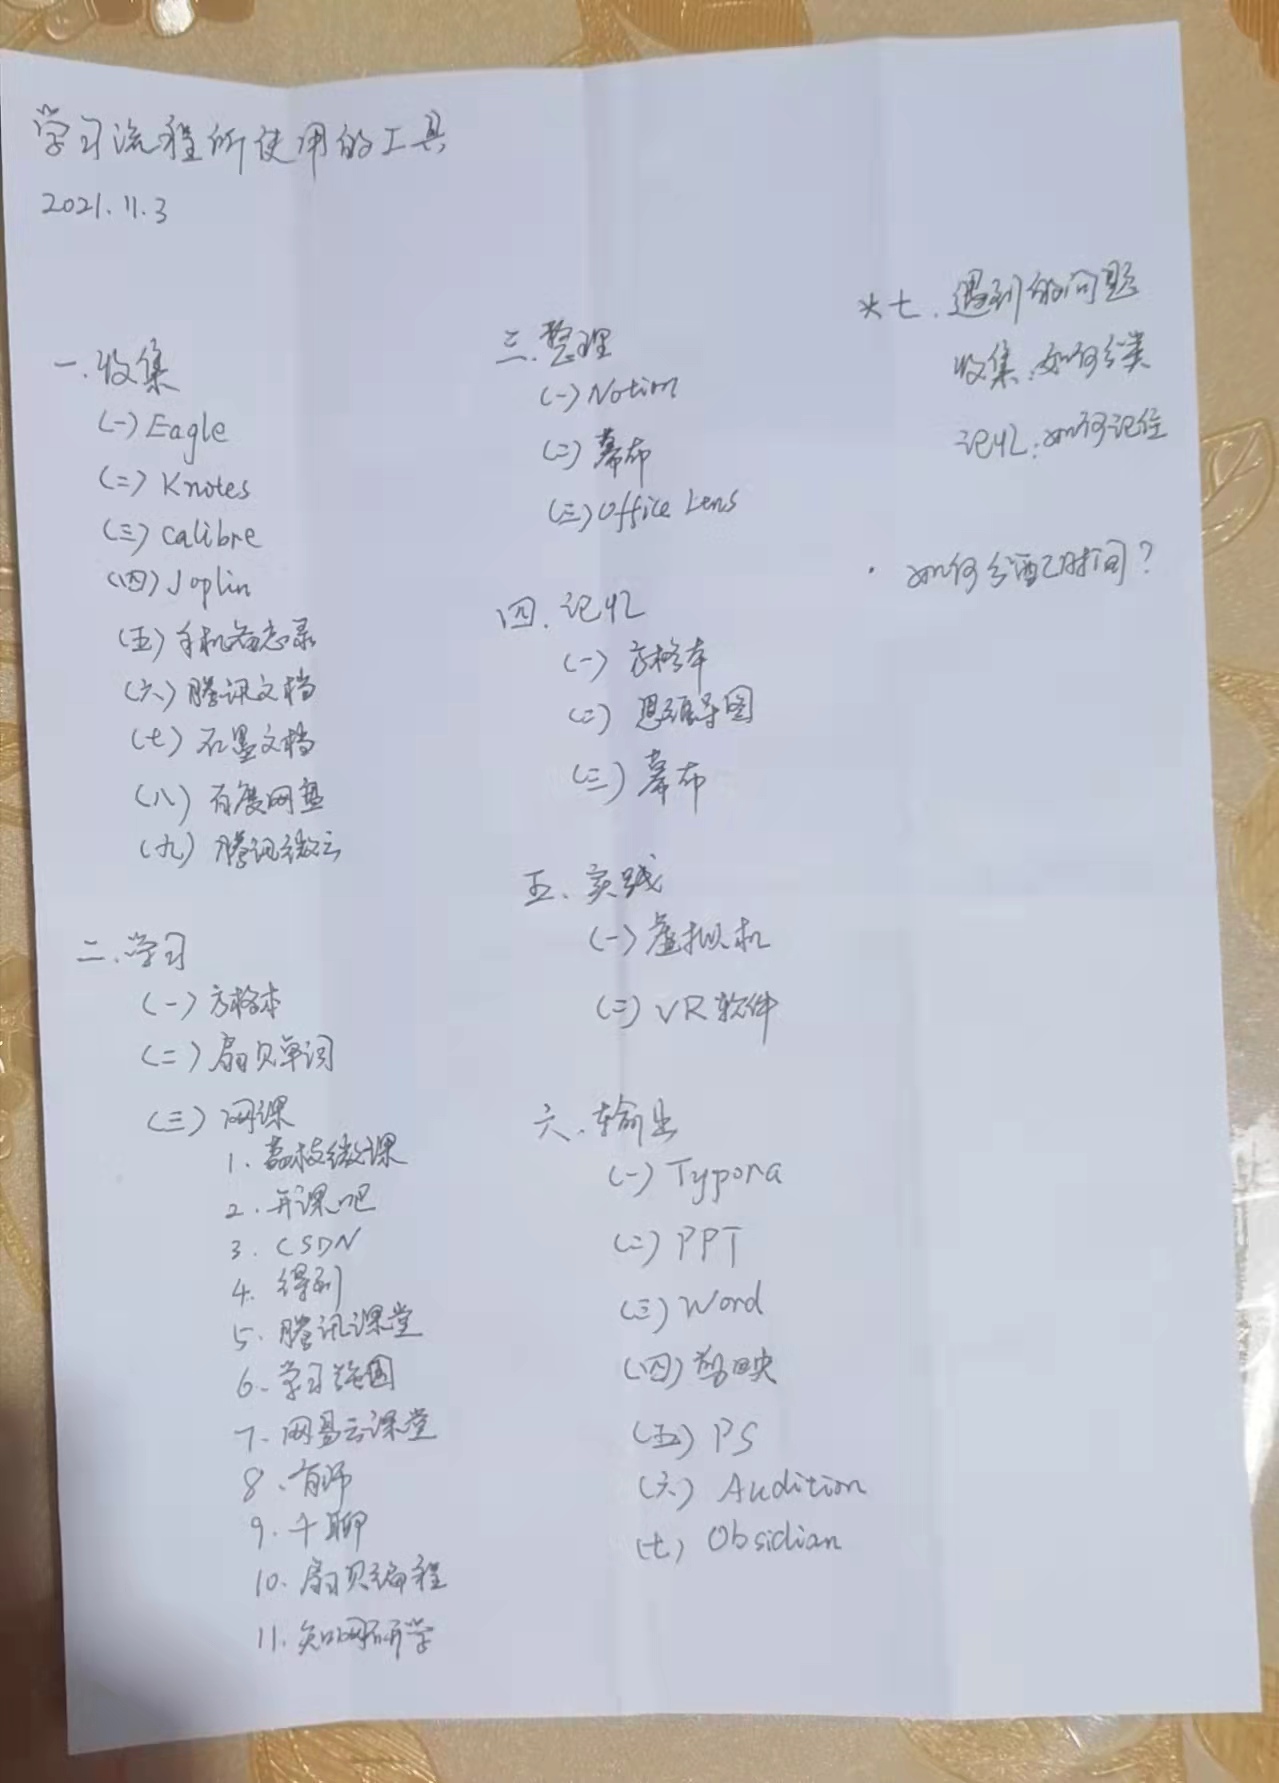 学习流程所使用的工具
2021.11.3
一.收集
(一) Eagle
(二) Knotes
(三) Calibre
(四) Joplin
(五) 手机备忘录
(六) 腾讯文档
(七) 石墨文档
(八) 百度网盘
(九) 腾讯微云
二.学习
(一) 方格本
(二) 扇贝单词
(三) 网课
1. 荔枝微课
2. 开课吧
3. CSDN
4. 得到
5. 腾讯课堂
6. 学习强国
7. 网易云课堂
8. 有师
9. 千聊
10. 扇贝编程
11. 知网研学
三.整理
(一) Notion
(二) 幕布
(三) Office Lens
四.记忆
(一) 方格本
(二) 思维导图
(三) 幕布
五.实践
(一) 虚拟机
(二) VR软件
六.输出
(一) Typora
(二) PPT
(三) Word
(四) 剪映
(五) PS
(六) Audition
(七) Obsidian
*七.遇到的问题
收集:如何分类
记忆:如何记住
·如何分配时间?